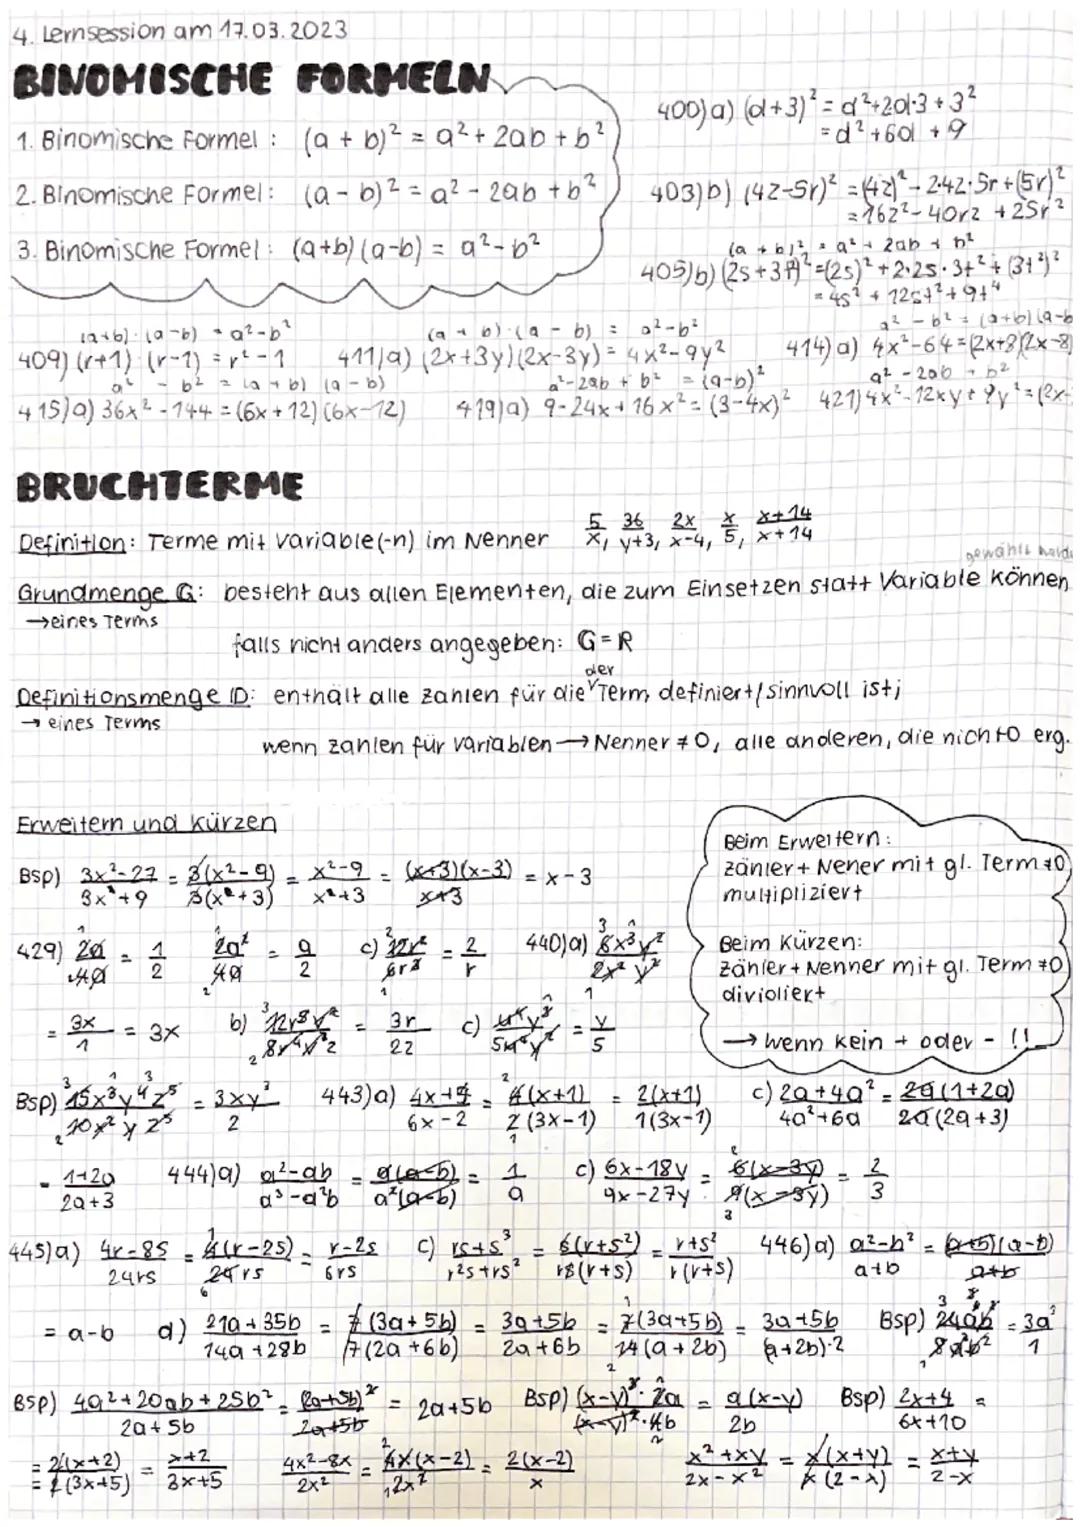 4. Lernsession am 17.03.2023
BINOMISCHE FORMELN
1. Binomische Formel : (a + b)² = a² + 2ab + b²
2. Binomische Formel : (a - b)² = a² - 2ab + b²
3. Binomische Formel : (a+b) (a-b) = a² - b²
400) a) (d+3)² = d²+2d·3+3²
= d²+6d +9
403) b) (4z-5r)² = (4z)² - 2·4z·5r + (5r)²
= 16z² - 40rz + 25r²
(a + b)² = a² + 2ab + b²
405) b) (2s+3t²)² = (2s)² + 2·2s·3t² + (3t²)²
= 4s² + 12st² + 9t⁴
(a+b)·(a-b) = a²-b²
409) (r+1)·(r-1) = r²-1
(a + b)·(a - b) = a²-b²
411) a) (2x+3y)(2x-3y) = 4x²-9y²
a² - b² = (a+b)(a-b
414) a) 4x²-64 = (2x+8)(2x-8)
a² - b² = (a+b) (a-b)
415) a) 36x² - 144 = (6x+12) (6x-12)
a²-2ab + b² = (a-b)²
419) a) 9-24x+16x² = (3-4x)²
a² - 2ab + b²
421) 4x²-12xy+9y² = (2x-
BRUCHTERME
Definition: Terme mit Variable(-n) im Nenner 5/x, 36/y+3, 2x/x-4, x/5, x+14/x+14
gewählt werde
Grundmenge G: besteht aus allen Elementen, die zum Einsetzen statt Variable können
→eines Terms
falls nicht anders angegeben: G = R
der
Definitionsmenge ID: enthält alle Zahlen für die Term definiert/sinnvoll ist;
→ eines Terms
wenn Zahlen für Variablen → Nenner ≠ 0, alle anderen, die nicht 0 erg.
Erweitern und kürzen
Beim Erweitern:
Zähler + Nener mit gl. Term ≠0
multipliziert
Beim Kürzen:
Zähler + Nenner mit gl. Term ≠0
dividiert
→ wenn kein + oder - !!
Bsp) 3x²-27/3x+9 = 3(x²-9)/3(x+3) = x²-9/x+3 = (x+3)(x-3)/x+3 = x-3
429) 2a/4a = 1/2 2a²/4a = a/2 c) 12r²/6r³ = 2/r 440) a) 6x³y²/2x²y²
= 3x/1 = 3x b) = 3r/2z c) = y/5
Bsp) 15x³y⁴z⁵/10x²yz⁵ = 3xy³/2 443) a) 4x+4/6x-2 = 4(x+1)/2(3x-1) = 2(x+1)/1(3x-1) c) 2a+4a²/4a²+6a = 2a(1+2a)/2a(2a+3)
= 1+2a/2a+3 444) a) a²-ab/a³-a²b = a(a-b)/a²(a-b) = 1/a c) 6x-18y/9x-27y = 6(x-3y)/9(x-3y) = 2/3
445) a) 4r-8s/24rs = 4(r-2s)/24rs = r-2s/6rs c) rs+s³/r²s+rs² = s(r+s²)/rs(r+s) = r+s²/r(r+s) 446) a) a²-b²/a+b = (a+b)(a-b)/a+b
= a-b d) 21a+35b/14a+28b = 7(3a+5b)/7(2a+6b) = 3a+5b/2a+6b = 7(3a+5b)/14(a+2b) = 3a+5b/(a+2b)·2 Bsp) = 3a²/1
Bsp) 4a²+20ab+25b²/2a+5b = (2a+5b)²/2a+5b = 2a+5b Bsp) (x-y)³·2a/(x-y)²·4b = a(x-y)/2b Bsp) 2x+4/6x+10 =
= 2(x+2)/2(3x+5) = x+2/3x+5 4x²-8x/2x² = 4x(x-2)/2x² = 2(x-2)/x x²+xy/2x-x² = x(x+y)/x(2-x) = x+y/2-x